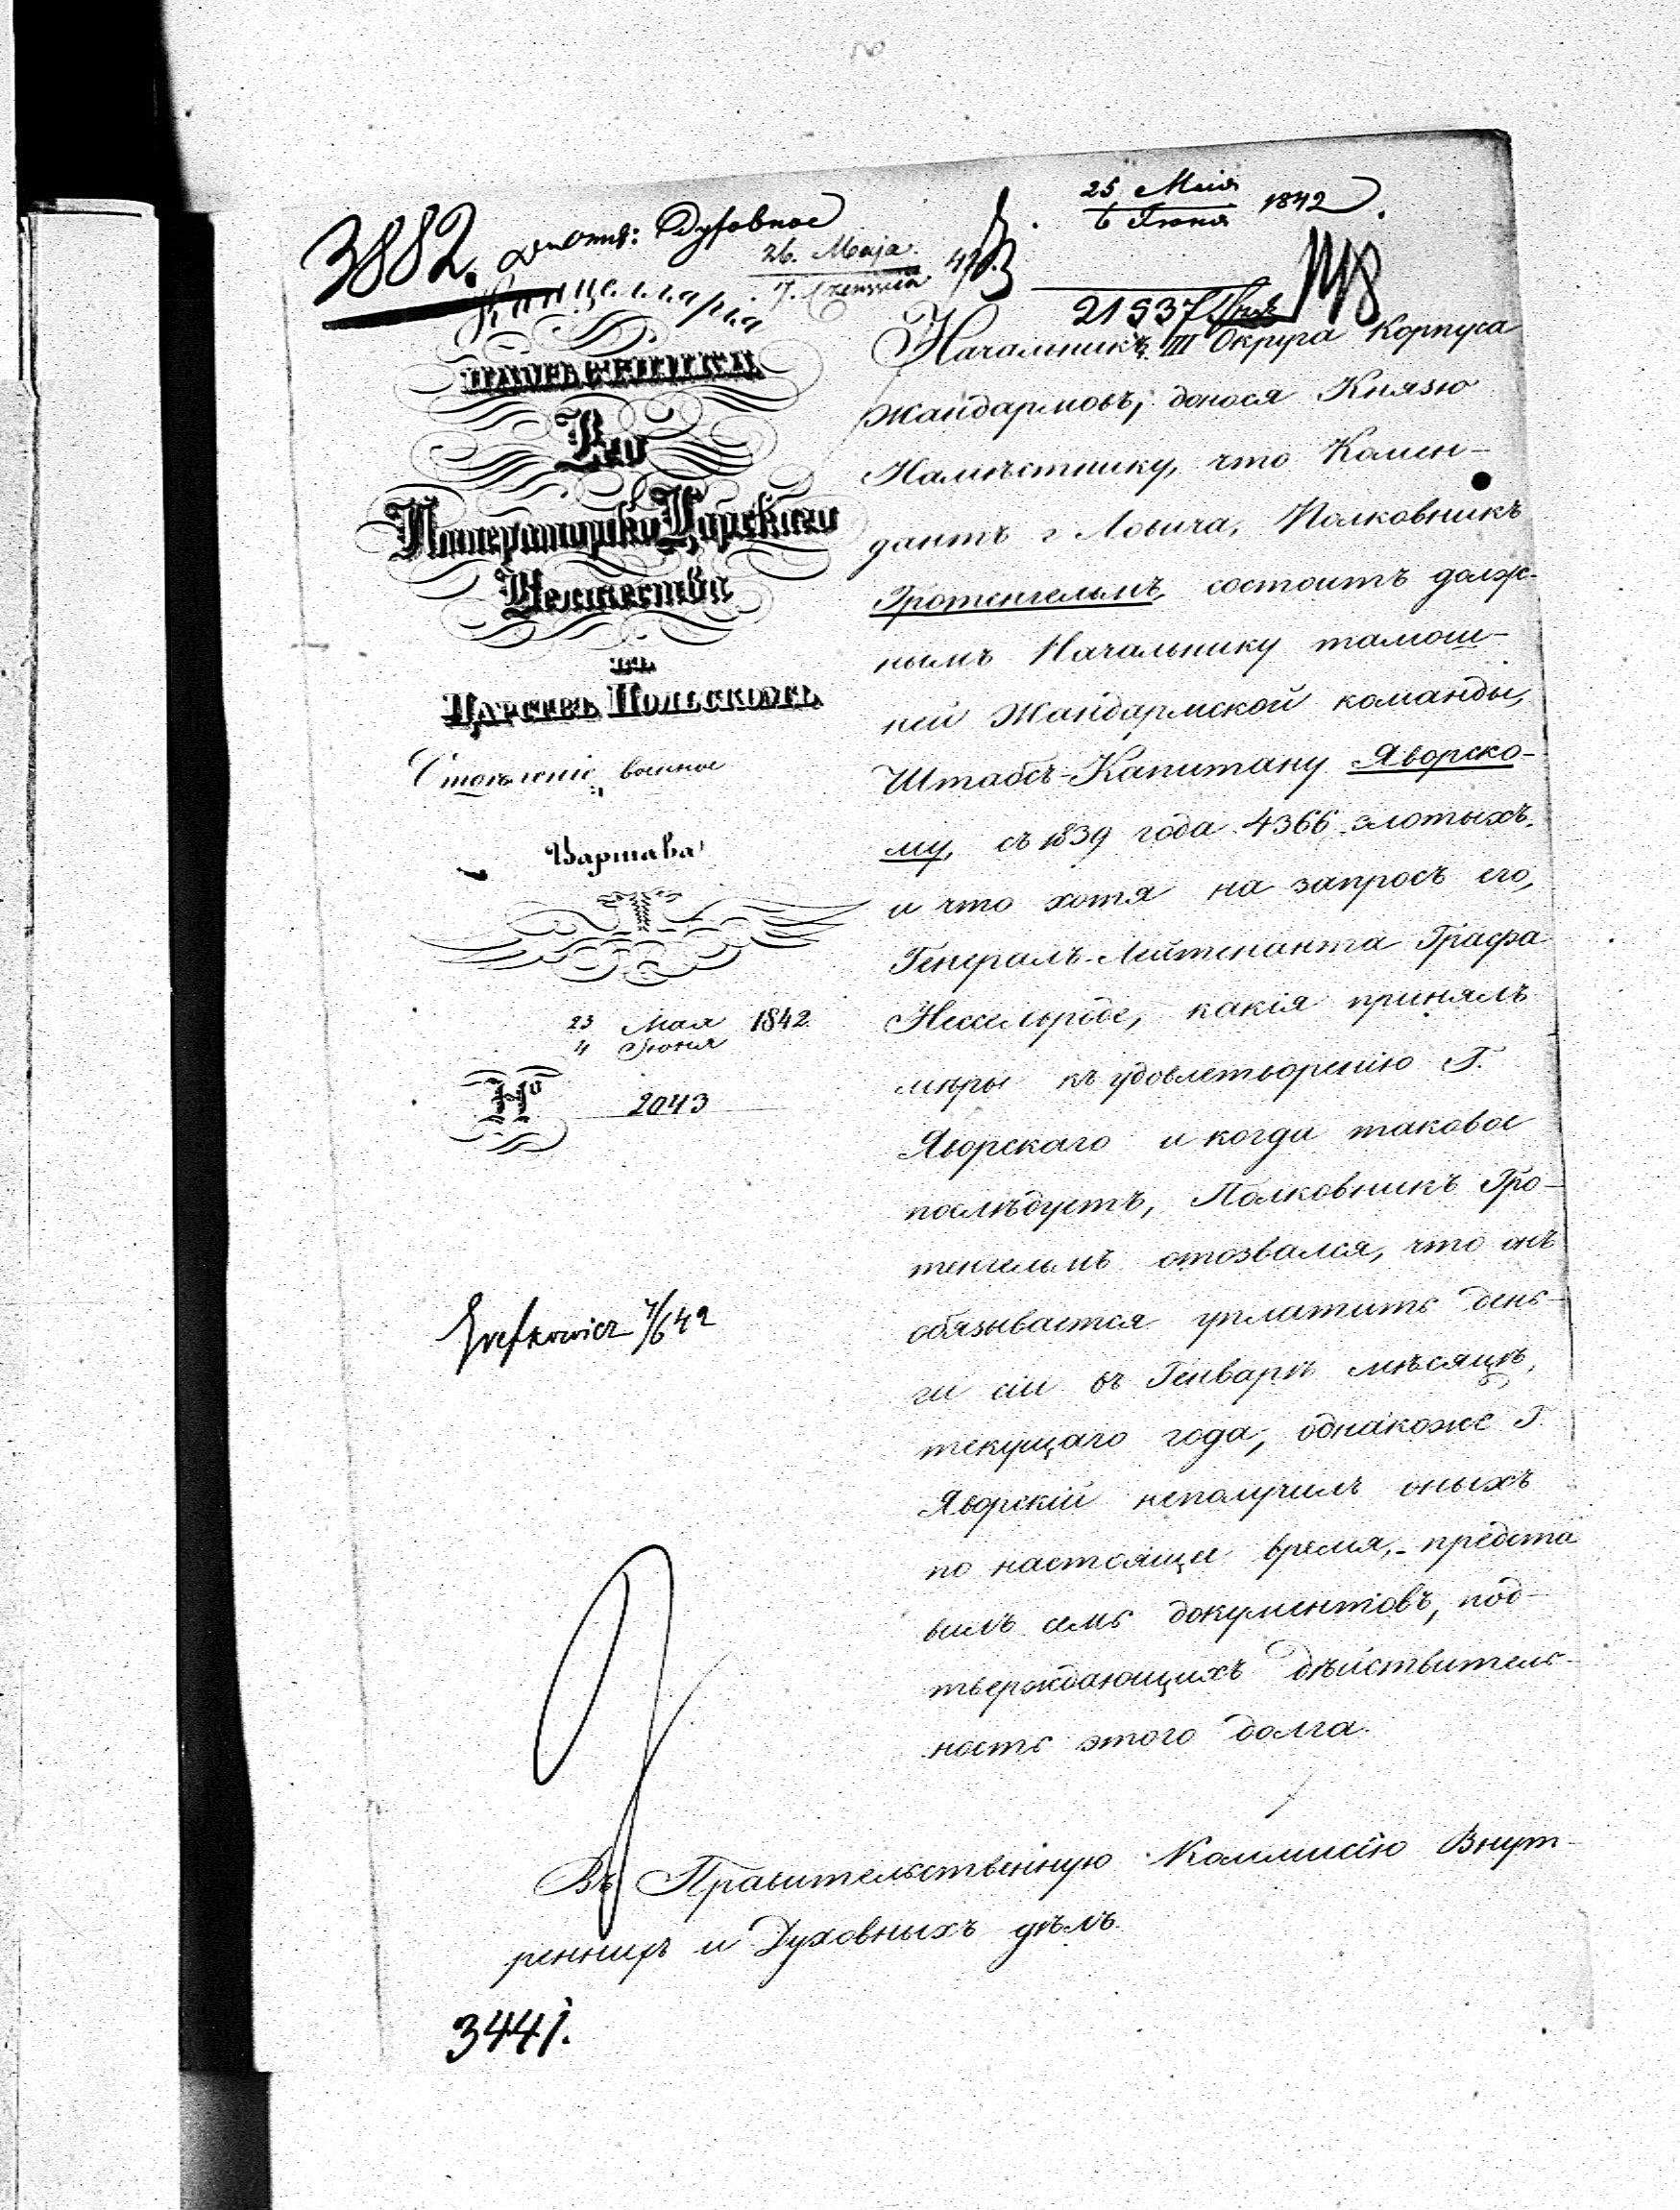 3882.
Духовное
25 Мая 1842.
6 Июня
26. Maja 42
7. Czerwca
21937
Канцелярія
Намѣстника
Его
Императорско Царскаго
Величества
въ
Царствѣ Польскомъ
Отдѣленіе военное
Варшава
23 Мая 1842.
4 Июня
№ 2043
Начальникъ III Округа Корпуса
Жандармовъ, донося Князю
Намѣстнику, что Комен-
дантъ г Ловича, Полковникъ
Гротенгельмъ, состоитъ долж-
нымъ Начальнику тамош-
ней Жандармской команды,
Штабсъ-Капитану Яворско-
му, съ 1839 года 4366 злотыхъ.
и что хотя на запросъ его,
Генералъ-Лейтенанта Графа
Нессельроде, какія принялъ
мѣры къ удовлетворенію Г.
Яворскаго и когда таковое
послѣдуетъ, Полковникъ Гро-
тенгельмъ отозвался, что онъ
обязывается уплатить день-
ги сіи въ Генварѣ мѣсяцѣ,
текущаго года, однакоже Г.
Яворскій неполучилъ оныхъ
по настоящее время, предста
вилъ семь документовъ, под-
тверждающихъ дѣйствитель-
ность этого долга.
7/6 42
Въ Правительственную Коммисію Внут-
реннихъ и Духовныхъ дѣлъ
3441.